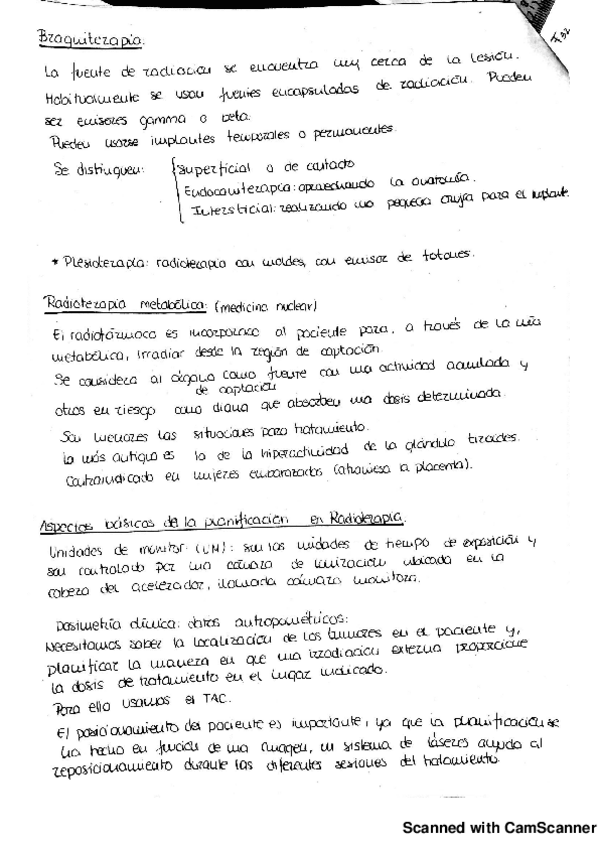 Braquiterapia:
La fuente de radiación se encuentra muy cerca de la lesión.
Habitualmente se usan fuentes encapsuladas de radiación. Pueden
ser emisores gamma o beta.
Pueden usarse implantes temporales o permanentes.
Se distinguen: Superficial o de contacto
Endocaviterapia: aprovechando la anatomía.
Intersticial: realizando una pequeña cirugía para el implante.
* Plesioterapia: radioterapia con moldes, con emisor de fotones.
Radioterapia metabólica: (medicina nuclear)
El radiofármaco es incorporado al paciente para, a través de la vía
metabólica, irradiar desde la región de captación.
Se considera al órgano como fuente con una actividad acumulada y
de captación
otros en riesgo como diana que absorben una dosis determinada.
Son menores las situaciones para tratamiento.
La más antigua es la de la hiperactividad de la glándula tiroides.
Contraindicado en mujeres embarazadas (atraviesa la placenta).
Aspectos básicos de la planificación en Radioterapia.
Unidades de monitor (UM): son las unidades de tiempo de exposición y
son controlado por una cámara de ionización ubicada en la
cabeza del acelerador, llamada cámara monitora.
Dosimetría clínica: datos antropométricos:
Necesitamos saber la localización de los tumores en el paciente y,
planificar la manera en que una irradiación externa proporcione
la dosis de tratamiento en el lugar indicado.
Para ello usamos el TAC.
El posicionamiento del paciente es importante, ya que la planificación se
ha hecho en función de una imagen, un sistema de láseres ayuda al
reposicionamiento durante las diferentes sesiones del tratamiento.
Scanned with CamScanner